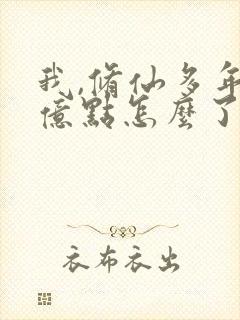 我,脩仙多年
億點怎麼了
衣布衣出